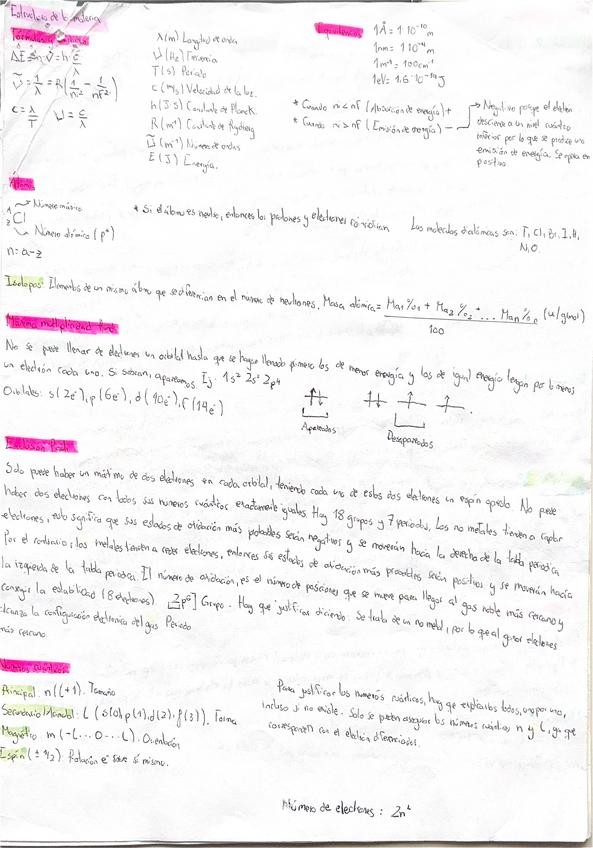 Estructura de la materia
Fórmulas
ΔE = h·ν = h·c/λ
ν̃ = 1/λ = R(1/ni² - 1/nf²)
c = λ/T  ν = c/λ
λ (m) Longitud de onda
ν (Hz) Frecuencia
T (s) Periodo
c (m/s) Velocidad de la luz.
h (J·s) Constante de Planck.
R (m⁻¹) Constante de Rydberg
ν̃ (m⁻¹) Numero de ondas
E (J) Energía.
Equivalencias
1Å = 1·10⁻¹⁰ m
1nm = 1·10⁻⁹ m
1m⁻¹ = 100cm⁻¹
1eV = 1,6·10⁻¹⁹ J
* Cuando ni < nf (Absorción de energía) +
* Cuando ni > nf (Emisión de energía) -
→ Negativo porque el electrón
desciende a un nivel cuántico
inferior por lo que se produce una
emisión de energía. Se opera en
positivo
Átomo
A → Número másico
Z Cl
→ Número atómico (p⁺)
n = a - z
* Si el átomo es neutro, entonces los protones y electrones coincidirían
Las moléculas diatómicas son: F, Cl, Br, I, H,
N, O.
Isótopos: Elementos de un mismo átomo que se diferencian en el numero de neutrones. Masa atómica = Ma₁·%₁ + Ma₂·%₂ + ... Maₙ·%ₙ / 100 (u/g/mol)
Máxima multiplicidad
No se puede llenar de electrones un orbital hasta que se hayan llenado primero los de menor energía y los de igual energía tengan por lo menos
un electrón cada uno. Si sobran, apareamos. Ej: 1s² 2s² 2p⁴
Orbitales: s (2e⁻), p (6e⁻), d (10e⁻), f (14e⁻)
Apareados
Desapareados
Exclusión Pauli
Solo puede haber un máximo de dos electrones en cada orbital, teniendo cada uno de estos dos electrones un espín opuesto. No puede
haber dos electrones con todos sus numeros cuánticos exactamente iguales. Hay 18 grupos y 7 periodos. Los no metales tienen a captar
electrones, esto significa que sus estados de oxidación más probables serán negativos y se moverán hacia la derecha de la tabla periodica
Por el contrario, los metales tienen a ceder electrones, entonces sus estados de oxidación más probables serán positivos y se moverán hacia
la izquierda de la tabla periodica. El número de oxidación, es el número de posiciones que se mueve para llegar al gas noble más cercano y
conseguir la estabilidad (8 electrones) 2p⁶] Grupo. Hay que justificar diciendo: Se trata de un no metal, por lo que al ganar electrones
alcanza la configuración electronica del gas Periodo
más cercano.
Números cuánticos
Principal: n (L+1). Tamaño
Secundario/Azimutal: L (s(0), p(1), d(2), f(3)). Forma
Magnético: m (-L...0...L). Orientación
Espín (± 1/2). Rotación e⁻ sobre si mismo.
Para justificar los numeros cuánticos, hay que explicarlos todos, uno por uno,
incluso si no existe. Solo se pueden asegurar los números cuánticos n y l, ya que
corresponden con el electrón diferenciador.
Número de electrones: 2n²